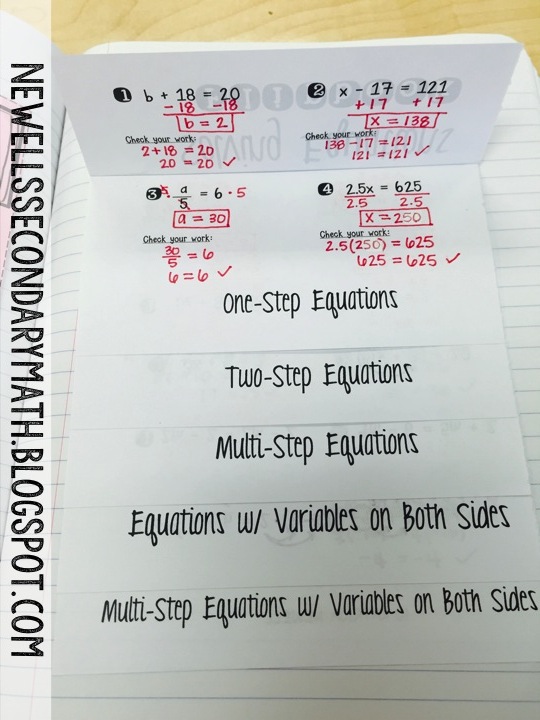 NEWELLSSECONDARYMATH.BLOGSPOT.COM
1 b + 18 = 20
- 18 -18
b = 2
Check your work:
2 + 18 = 20
20 = 20 ✓
2 x - 17 = 121
+ 17 + 17
x = 138
Check your work:
138 - 17 = 121
121 = 121 ✓
3 5 · a/5 = 6 · 5
a = 30
Check your work:
30/5 = 6
6 = 6 ✓
4 2.5x = 625
2.5 2.5
x = 250
Check your work:
2.5(250) = 625
625 = 625 ✓
One-Step Equations
Two-Step Equations
Multi-Step Equations
Equations w/ Variables on Both Sides
Multi-Step Equations w/ Variables on Both Sides